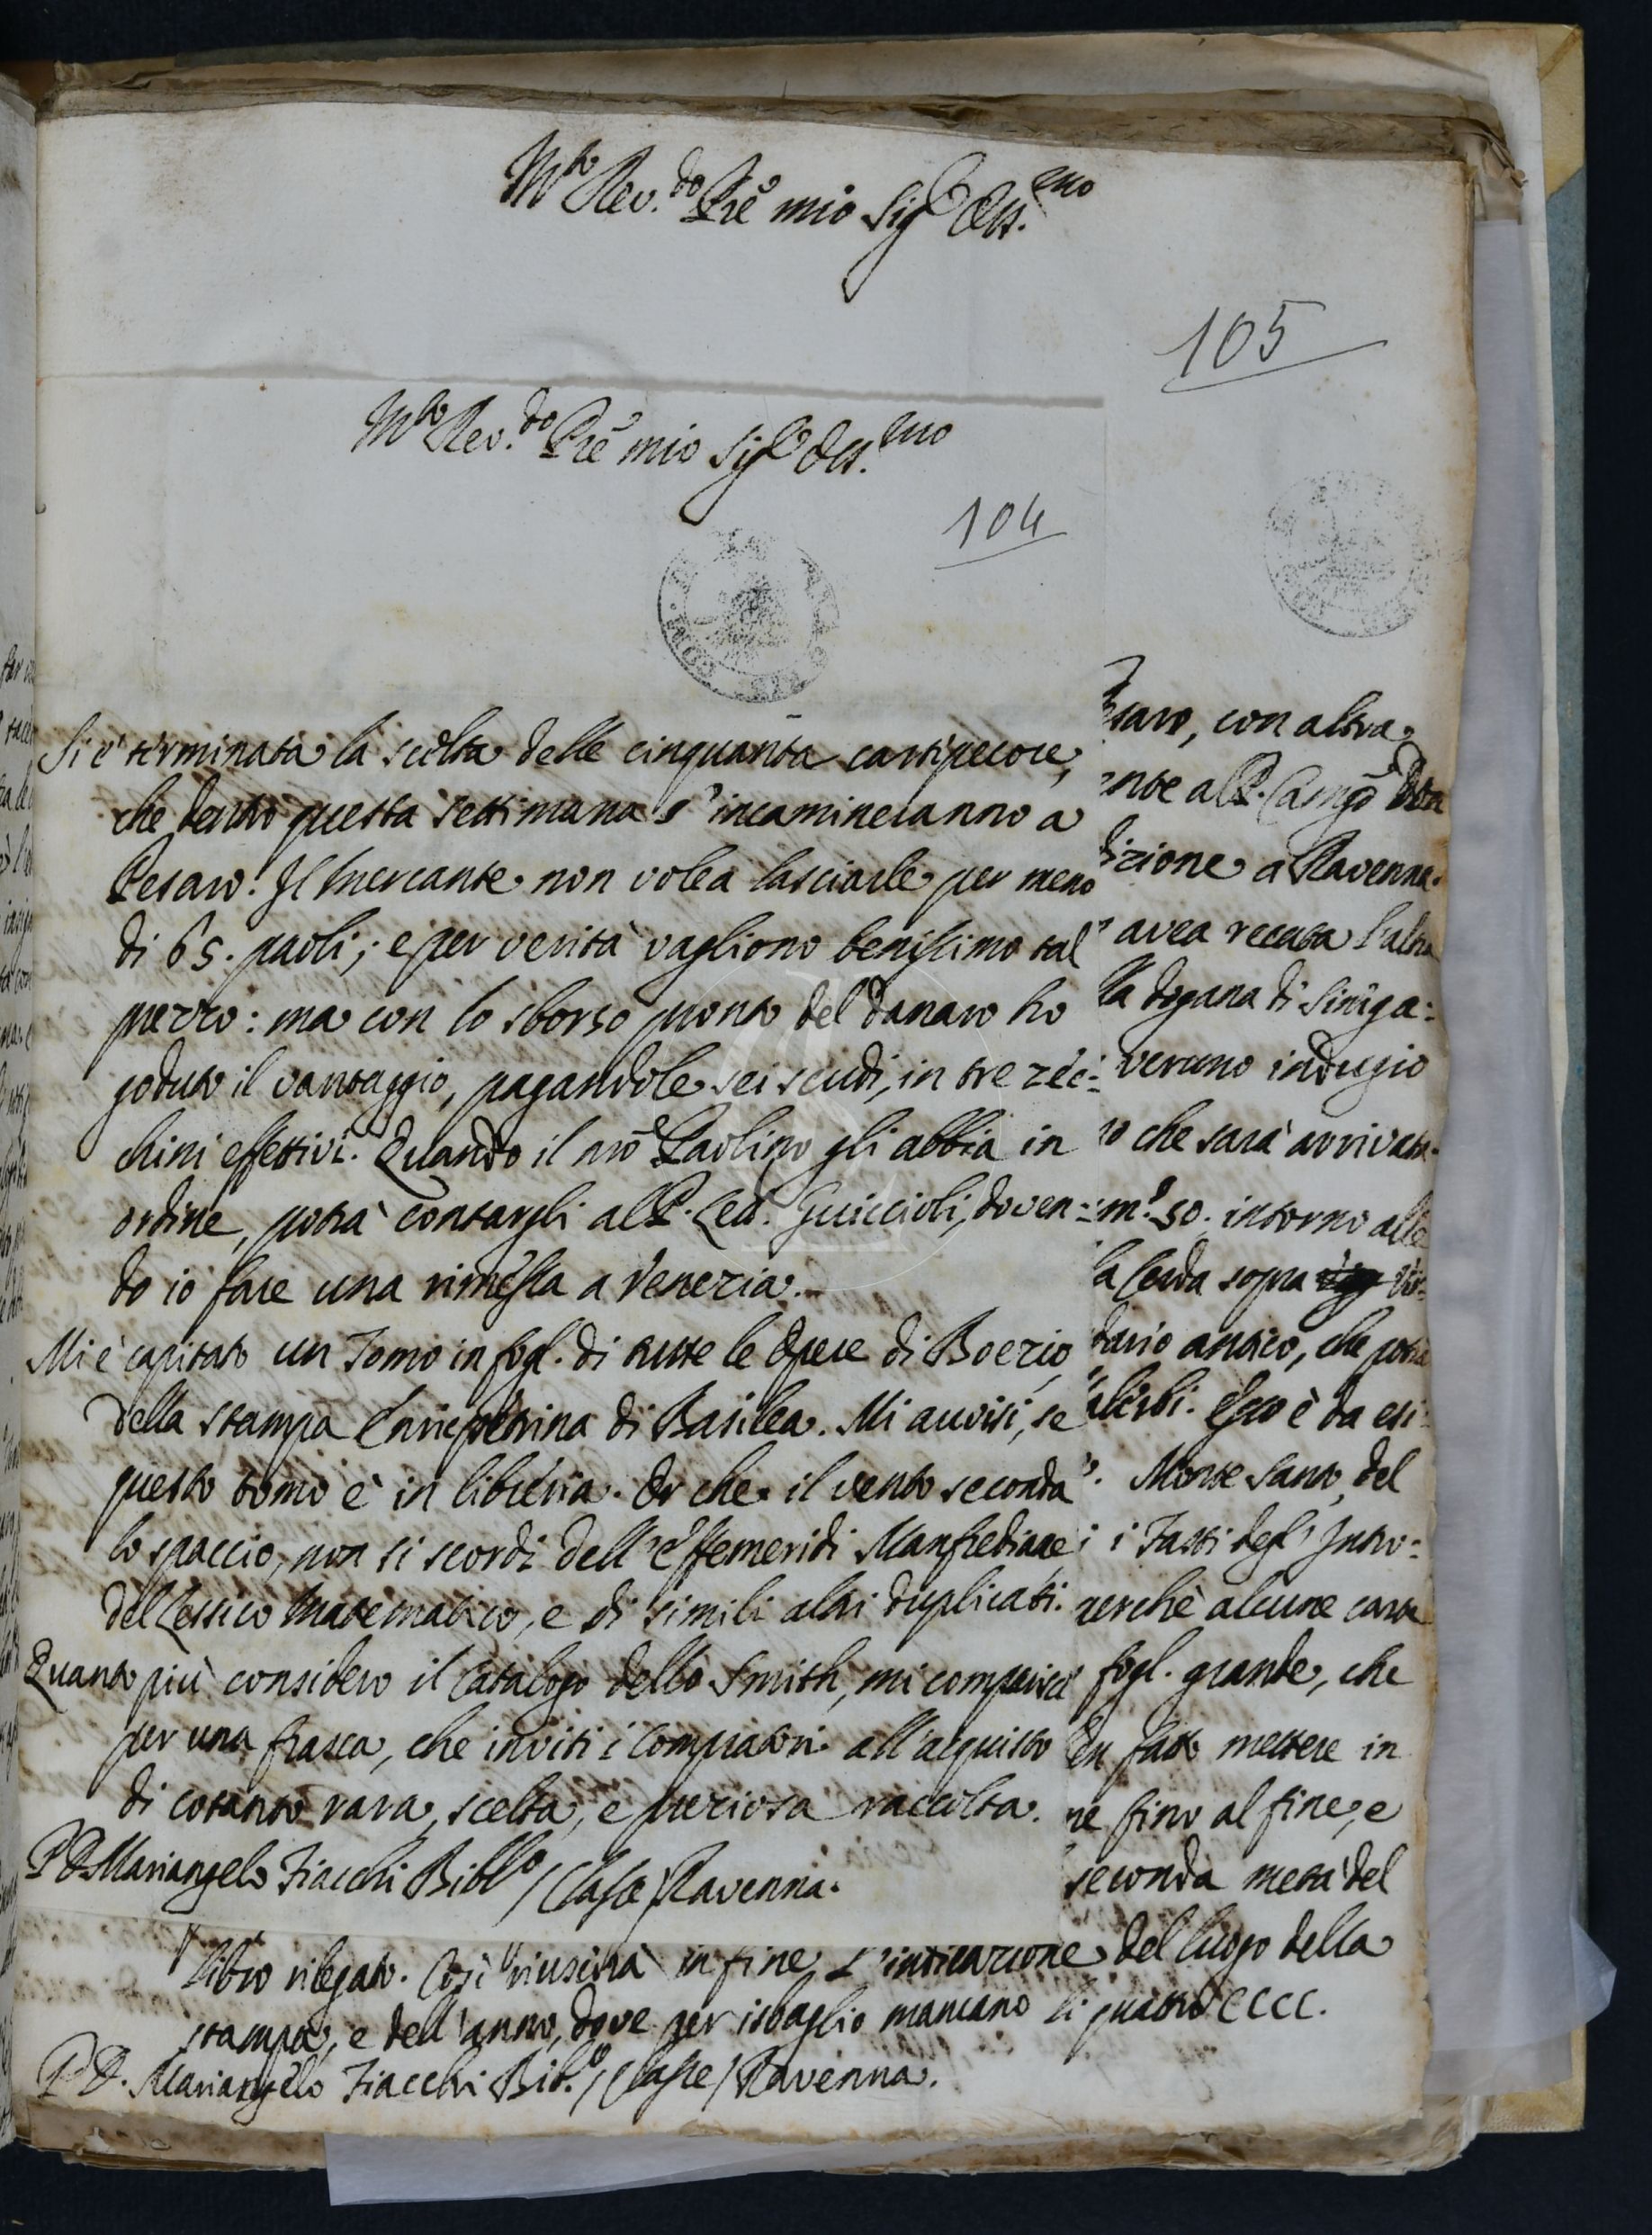 M.to Rev.do Pre mio Sig.e Oss.mo
105
M.to Rev.do Pre mio Sig.e Oss.mo
104
Si è terminata la scelta delle cinquanta cartipecore,
che dentro questa settimana s'incamineranno a
Pesaro. Il Mercante non volea lasciarle per meno
di 65. paoli; e per verità vagliono benissimo tal
prezzo: ma con lo sborso pronto del danaro ho
goduto il vantaggio, pagandole sei scudi, in tre zec:
chini effettivi. Quando il nro Paolino gli abbia in
ordine, potrà contargli al P. Guiccioli, doven:
do io fare una rimessa a Venezia.
Mi è capitato un Tomo in fogl. di tutte le Opere di Boezio,
della stampa Enricpetrina di Basilea. Mi auvisi, se
questo tomo è in libreria. Or che il vento seconda
lo spaccio, non si scordi dell'Effemeridi Manfrediane
del Lessico Matematico, e di simili altri duplicati.
Quanto più considero il Catalogo dello Smith, mi comparisce
per una frasca, che inviti i Compratori all'acquisto
di cotanto rara, scelta, e preziosa raccolta.
P. D. Mariangelo Fiacchi Bibl.o / Classe / Ravenna.
saro, con altra
nte al P. Camgo
dizione a Ravenna.
avea recata l'altra
la dogana di Siniga:
veruno indugio
o che sarà arrivata.
m.o 50. intorno alle
la Cerda sopra Vir:
dario antico, che potrà
Esso è da esi
Monte Santo, del
i Fasti degl'Intro:
perchè alcune carte
fogl. grande, che
fatto mettere in
ne fino al fine, e
seconda metà del
libro rilegato. Così riuscirà in fine l'indicazione del luogo della
stampa, e dell'anno, dove per isbaglio mancano li quattro CCCC.
P. D. Mariangelo Fiacchi Bib.o / Classe / Ravenna.